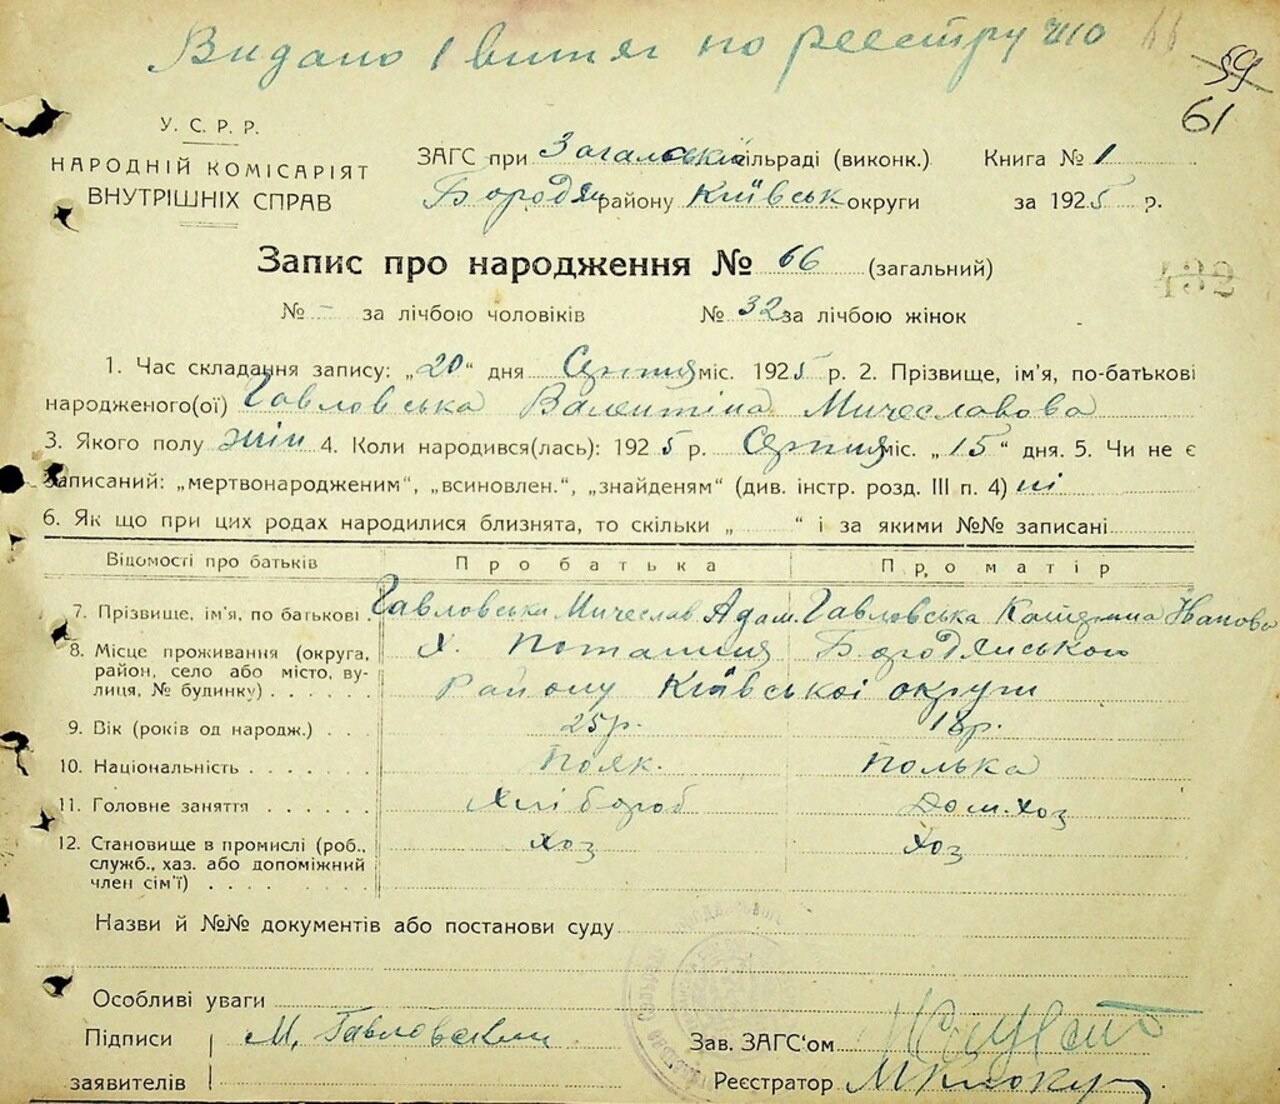 Видано 1 витяг по реєстру №10 66
59
61
У. С. Р. Р.
НАРОДНІЙ КОМІСАРІЯТ
ВНУТРІШНІХ СПРАВ
ЗАГС при Загальській сільраді (виконк.) Книга № 1
Бородян району Київськ округи за 1925 р.
Запис про народження № 66 (загальний)
132
№ - за лічбою чоловіків № 32 за лічбою жінок
1. Час складання запису: „20“ дня Серпня міс. 1925 р. 2. Прізвище, ім'я, по-батькові
народженого(ої) Гавловська Валентіна Мичеславова
3. Якого полу жін 4. Коли народився(лась): 1925 р. Серпня міс. „15“ дня. 5. Чи не є
записаний: „мертвонародженим“, „всиновлен.“, „знайденям“ (див. інстр. розд. III п. 4) ні
6. Як що при цих родах народилися близнята, то скільки „ “ і за якими №№ записані
Відомості про батьків Про батька Про матір
7. Прізвище, ім'я, по батькові Гавловськи Мичеслав Адам. Гавловська Катерина Іванова
8. Місце проживання (округа, район, село або місто, вулиця, № будинку) х. Поташня Бородянського
Району Київської округи
9. Вік (років од народж.) 25р. 18р.
10. Національність Пояк. Полька
11. Головне заняття Хлібороб Дом. хоз
12. Становище в промислі (роб., служб., хаз. або допоміжний член сім'ї) хоз хоз
Назви й №№ документів або постанови суду
Особливі уваги
Підписи М. Гавловский Зав. ЗАГС'ом
заявителів Реєстратор